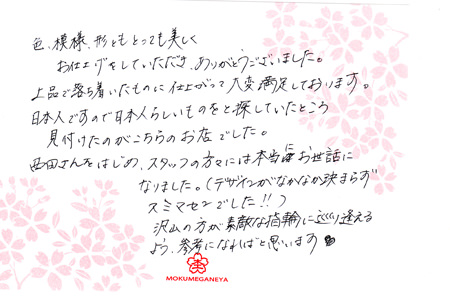 色、模様、形ともとっても美しく
お仕上げをしていただき、ありがとうございました。
上品で落ち着いたものに仕上がって大変満足しております。
日本人ですので日本人らしいものをと探していたところ
見付けたのがこちらのお店でした。
西田さんをはじめ、スタッフの方々には本当にお世話に
なりました。（デザインがなかなか決まらず
スミマセンでした!!）
沢山の方が素敵な指輪に巡り逢える
よう、参考になればと思います
MOKUMEGANEYA